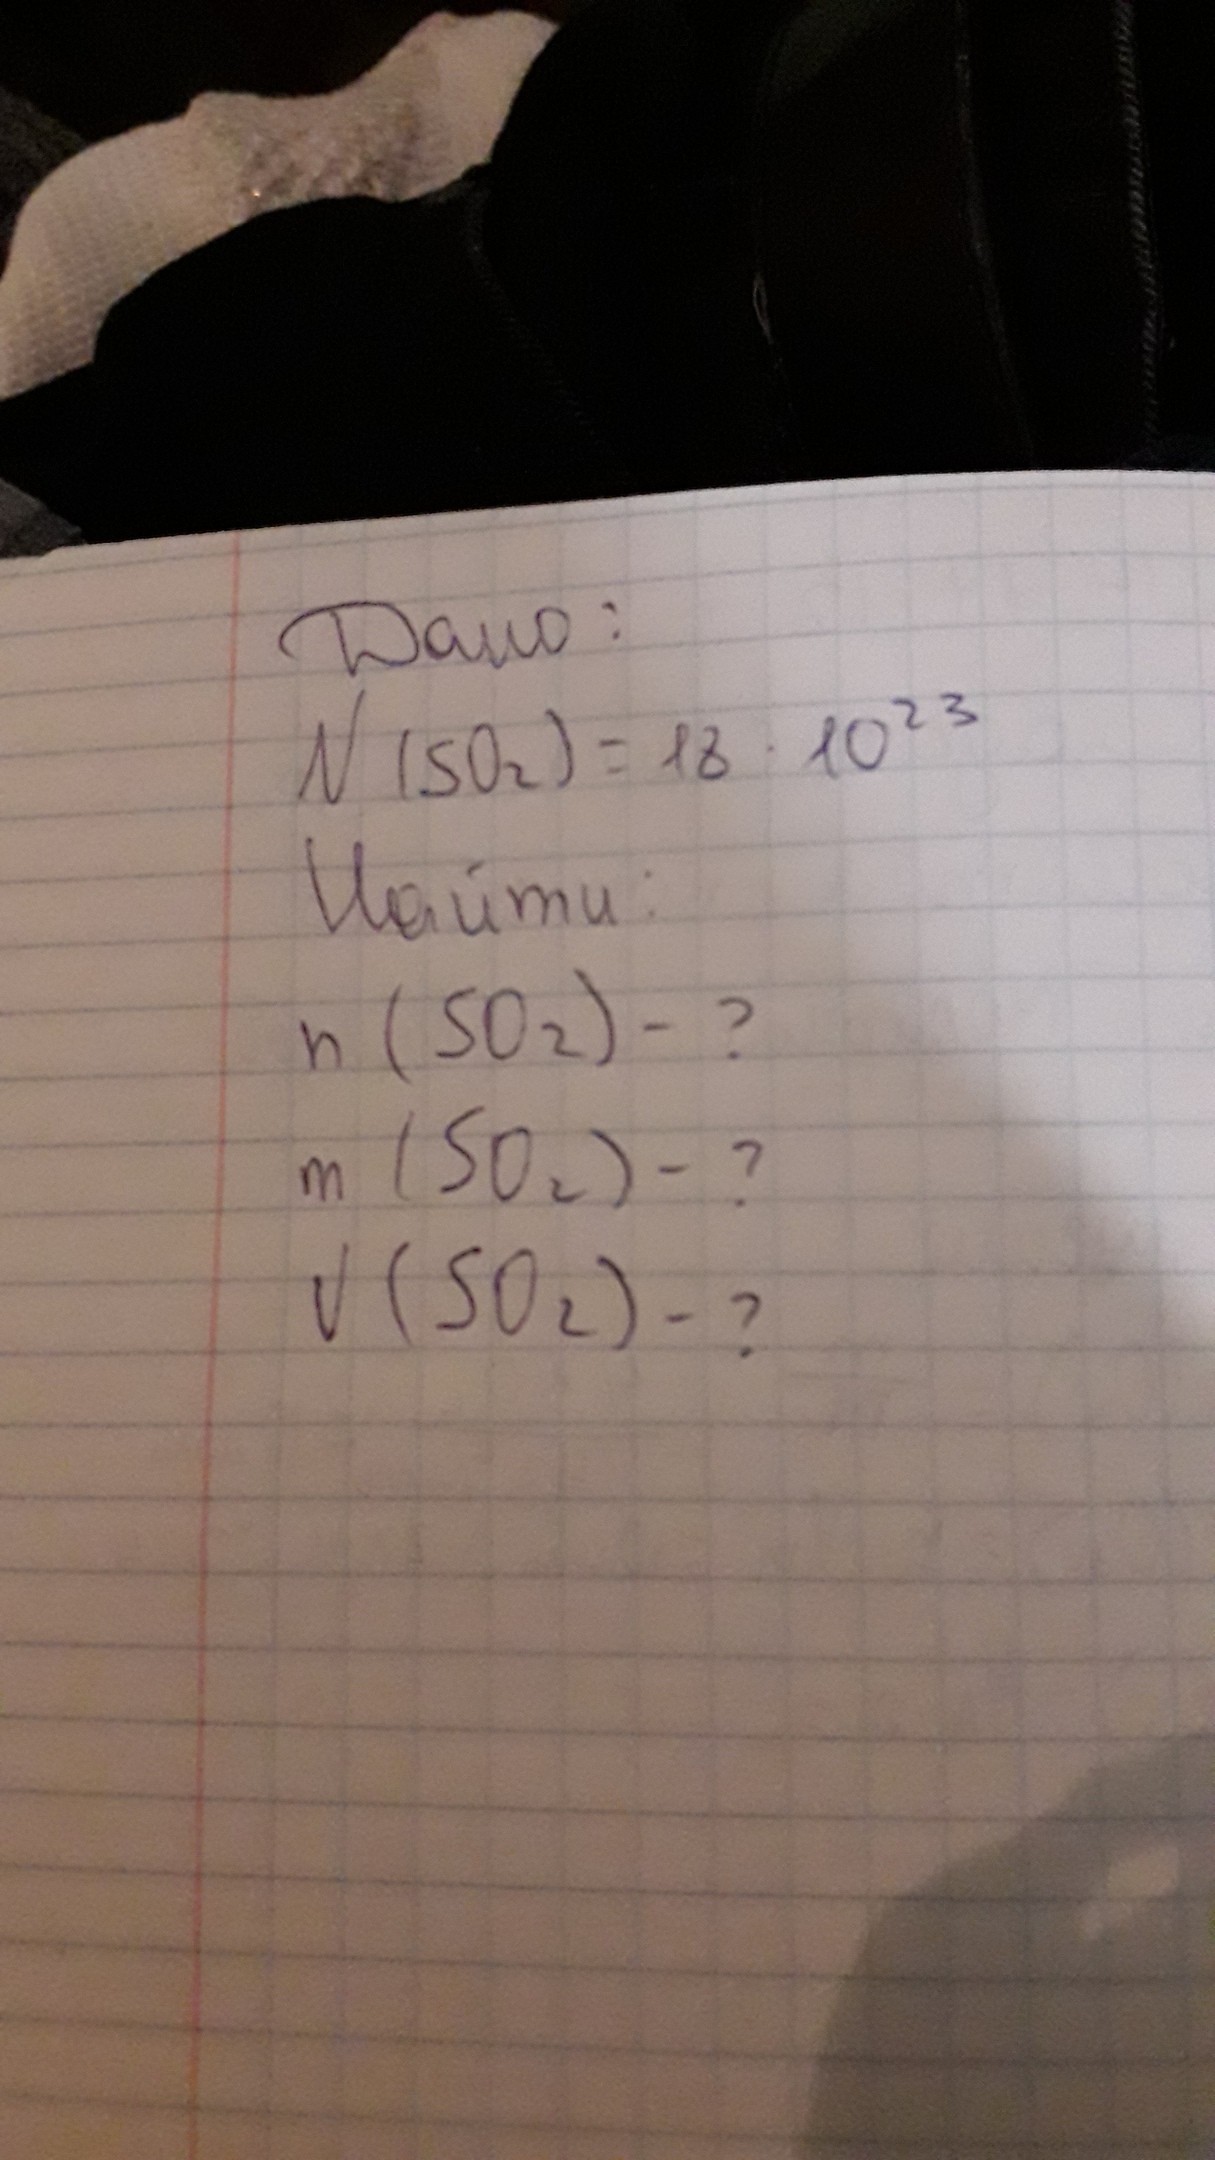 Дано:
N (SO₂) = 18 · 10²³
Найти:
n (SO₂) - ?
m (SO₂) - ?
V (SO₂) - ?